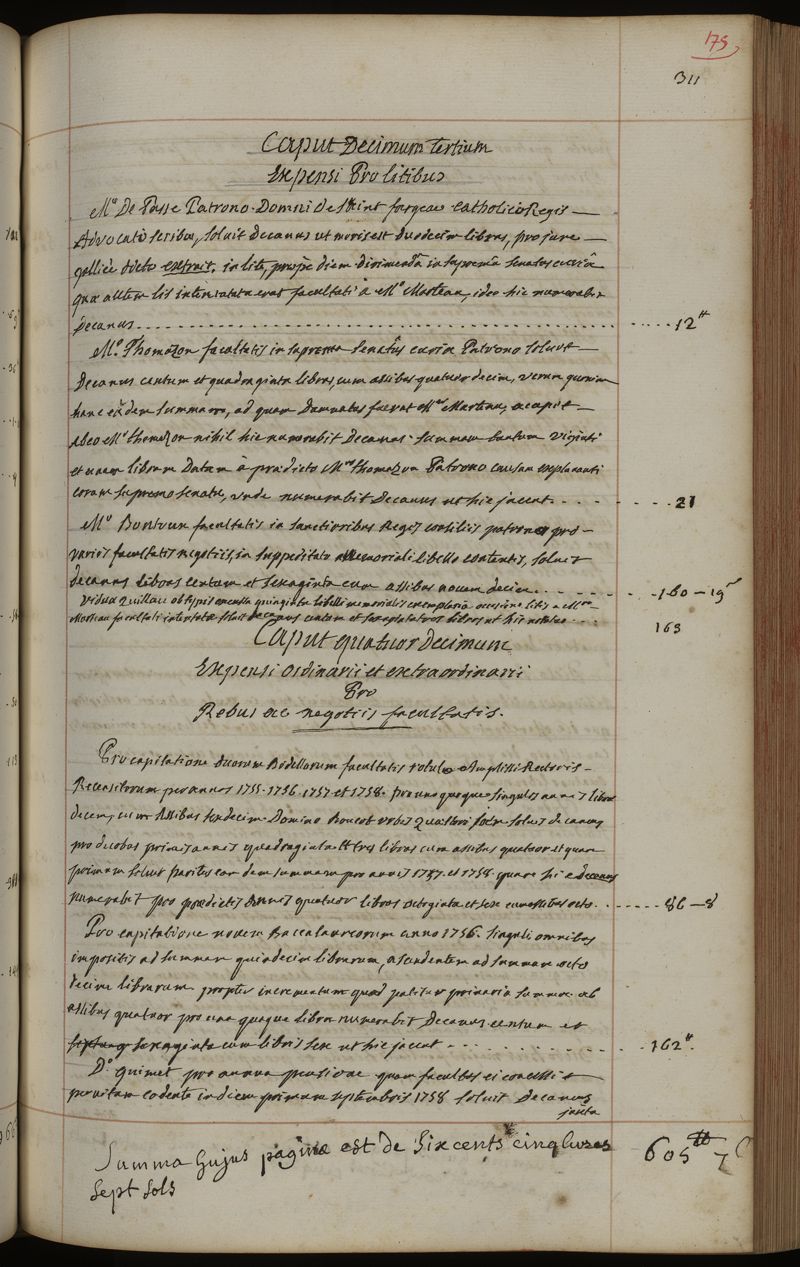 175
311
Caput Decimum tertium
Expensi Pro litibus
Mo De Passe Patrono Domini de Saint fargeau Catholico Regis
Advocatis scribae, soluit decanus ut moris est duodecim libras, pro jure
gallicè dicto extrait, in lite, propè diem dirimendâ in supremâ senatus curiâ
quae autem lis intentata erat facultati a Mo Marteau, ideo hic numerabit
Decanus 12 tt
Mo Thomazon facultatis in suprema senatûs curia Patrono soluit
Decanus centum et quadraginta libras, cum assibus quatuor decim, verum quoniam
hanc eãdem summam, ad quam Damnatus fuerat Mus Marteau, accepit
ab eo Mo thomazon nihil hic numerabit Decanus summam tantum viginti
et unam libram Datam à praedicto Mro thomazon Patrono causam explananti
coram supremo senatu, unde numerabit Decanus ut hic jacent 21
Mo facultatis in sanctioribus Regis consiliis patrono pro
variis facultatis negotiis, in suppeditato memoriali libello contentis, soluit
decanus libras centum et sexaginta cum assibus novem decim 160 - 19 s
vidua quillau ob typis excussa quinginta libelli memorialis exemplaria occasione litis a Mro
Marteau facultati intentatae soluit decanus centum et libras ut hic notatur
163
Caput quatuor Decimum
Expensi ordinarii et extraordinarii
Pro
Rebus ac negotiis facultatis.
Pro capitatione duorum Bidellorum facultatis rotulo Amplissi Rectoris
Recensitorum per annos 1755. 1756. 1757 et 1758. pro uno quoque singulis annis libras
decem, cum Assibus sexdecim Domino Boucot urbis Quaestori soluit decanus
pro duobus primis annis quadraginta tres libras cum assibus quatuor et quam
primum soluet paritèr eamdem summam pro annis 1757. et 1758. quare hic decanus
numerabit pro praedictis annis quatuor libras octoginta et sex cum assibus octo 86 - 8
Pro capitatione novem Baccalaureorum anno 1756. singulis omnibus
impositis ad summam quindecim librarum, ascendentem ad summam octo
decim librarum propter incrementum quod patitur primaria summa ab
assibus quatuor pro una quaque libra numerabit Decanus centum et
sexaginta cum libris sex ut hic jacent 162 tt.
Do guimet pro annua pensione quam facultas ei concessit
per vitam cadente in diem primam septembris 1758 soluit Decanus
juxta
Summa hujus paginæ est de Six cents cinq livres
Sept sols
605 tt 7 s